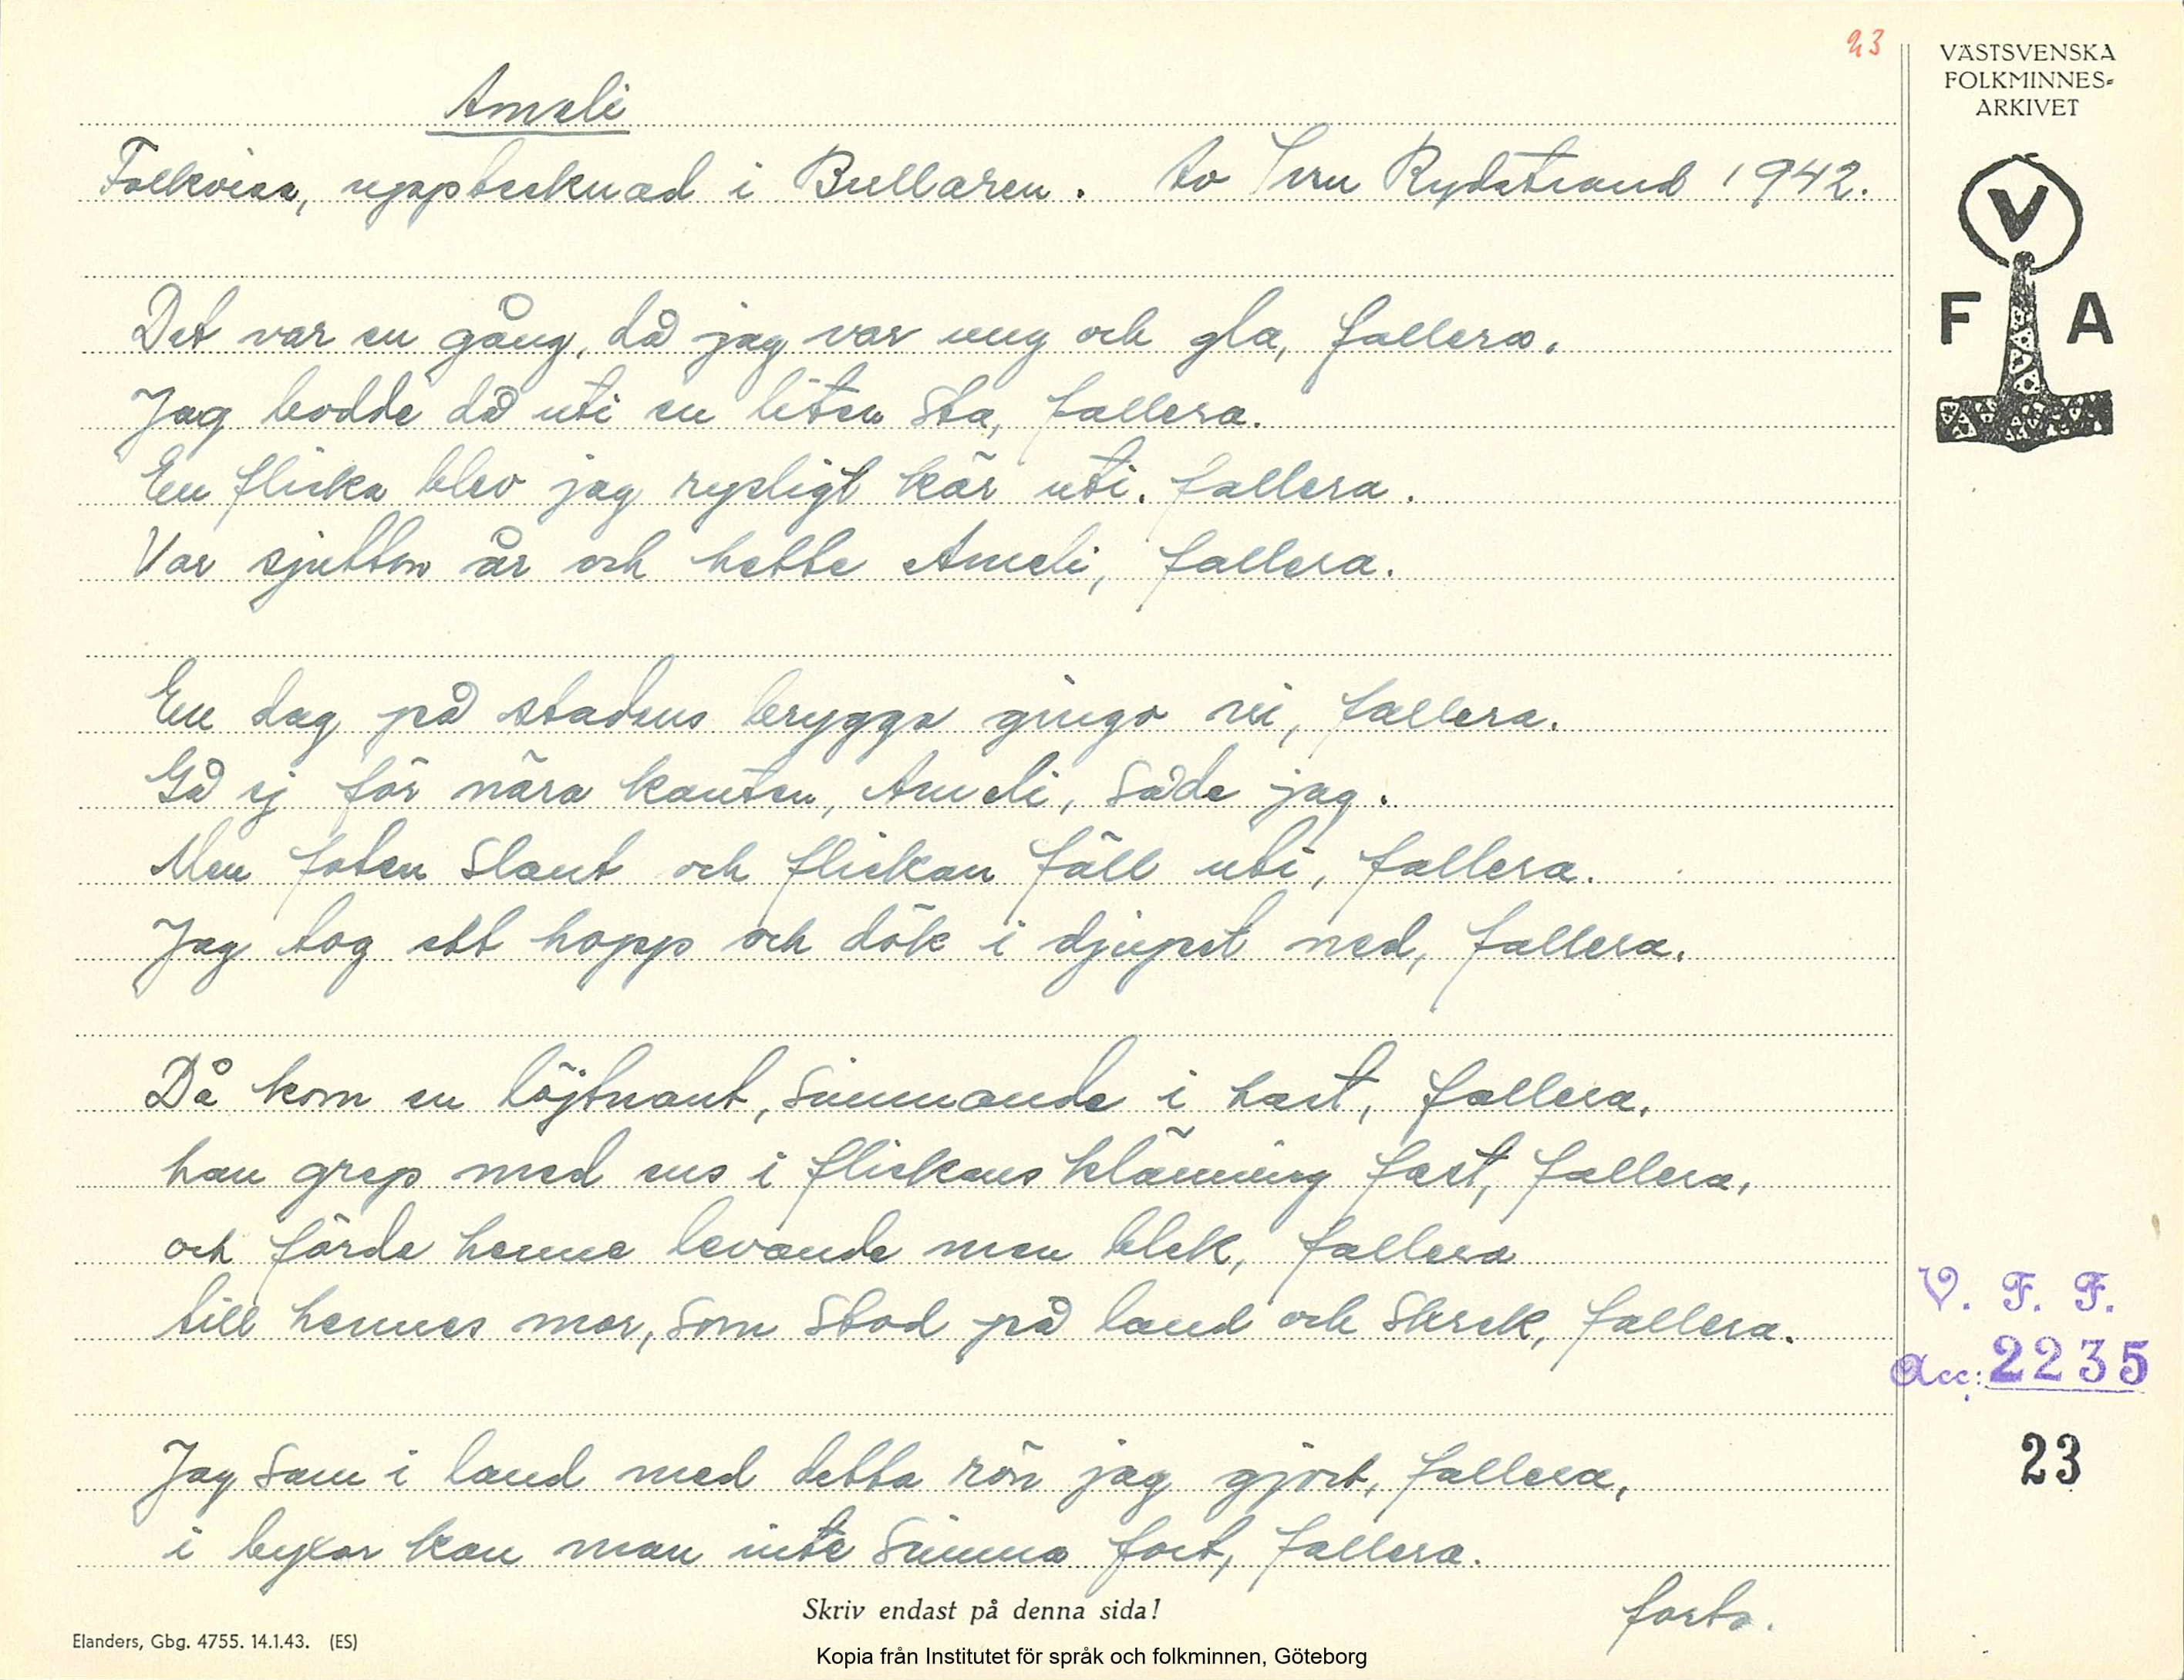 23
VÄSTSVENSKA
FOLKMINNES-
ARKIVET
V
F A
Ameli
Folkvisa, uppteeknad i Bullaren. Av Rydstrand 1942.
Det var en gång, då jag var ung och gla, fallera.
Jag bodde då uti en liten sta, fallera.
En flicka blev jag rysligt kär uti. fallera.
Var sjutton år och hette Ameli, fallera.
En dag på stadens brygga gingo vi, fallera.
Gå ej för nära kanten, Ameli, sade jag.
Men foten slant och flickan föll uti, fallera.
Jag tog ett hopp och dök i djupet ned, fallera.
Då kom en löjtnant, simmande i hast, fallera,
han grep med ens i flickans klänning fast, fallera,
och förde henne levande men blek, fallera
till hennes mor, som stod på land och skrek, fallera.
Jag sam i land med detta rön jag gjort, fallera,
i byxor kan man inte simma fort, fallera.
forts.
V. F. F.
Acc: 2235
23
Skriv endast på denna sida!
Elanders, Gbg. 4755. 14.1.43. (ES)
Kopia från Institutet för språk och folkminnen, Göteborg